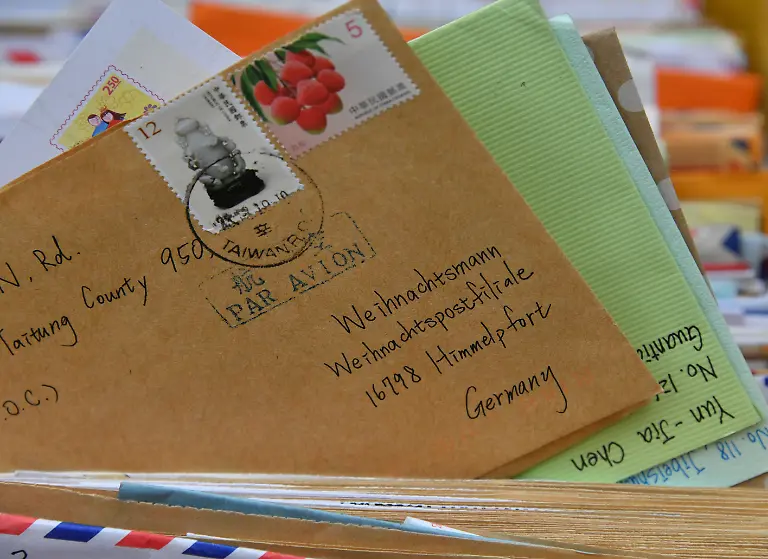 250
12
中華民國郵票
5
中華民國郵票
TAIWAN R.O.C.
航空
PAR AVION
N. Rd.
Taitung County 950
.O.C.)
Weihnachtsmann
Weihnachtspostfiliale
16798 Himmelpfort
Germany
Yun-Jia Chen
No. 12
Guanti
No. 118,